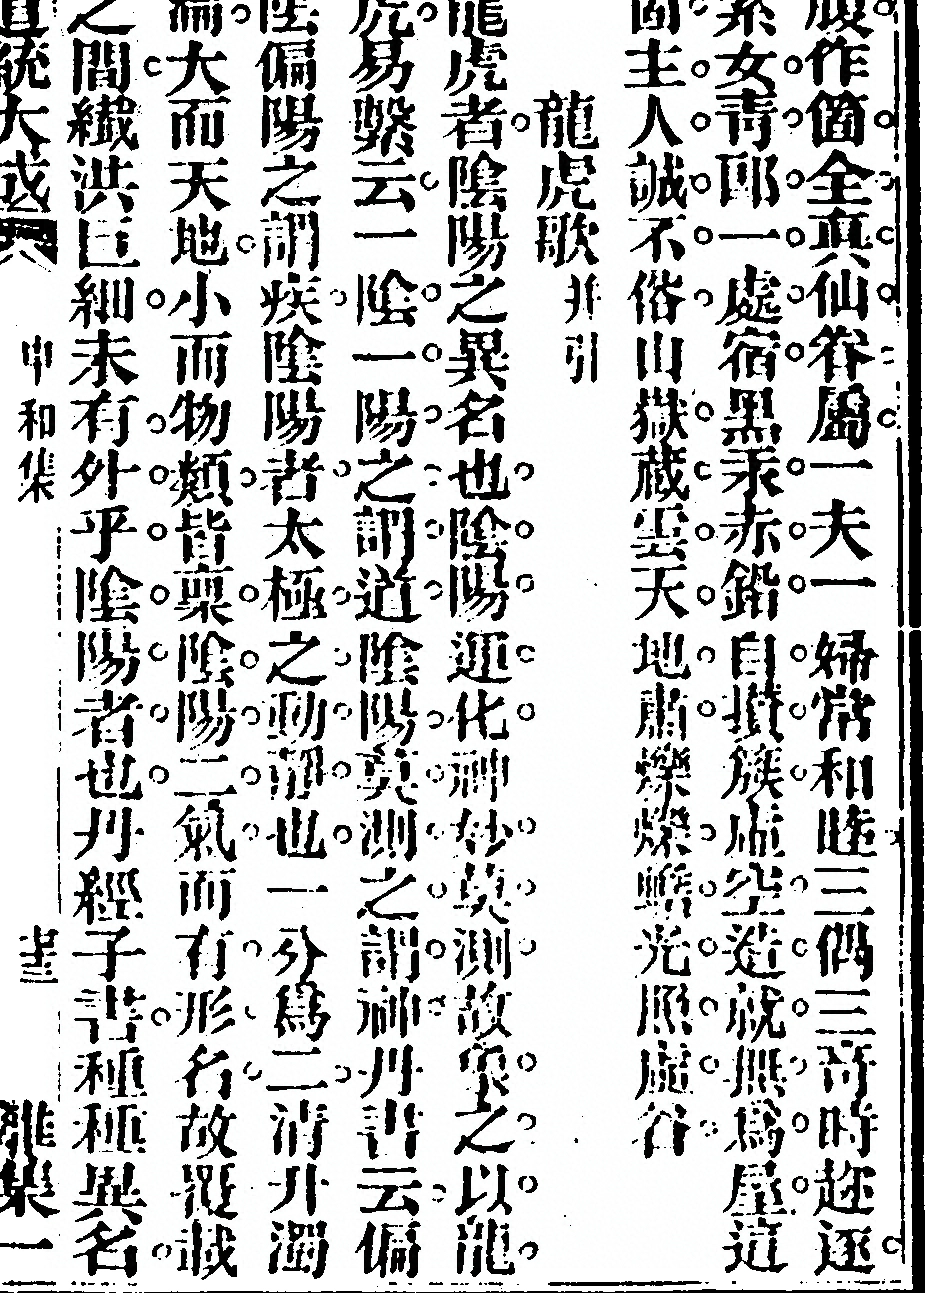 腹作箇全真仙眷屬一夫一婦常和睦三偶三竒時趂逐
素女青郎一處宿黑汞赤鉛自攢簇虛空造就無爲屋這
箇主人誠不俗山嶽藏雲天地肅爍爍蟾光照虛谷
龍虎歌并引
龍虎者陰陽之異名也陰陽運化神妙莫測故象之以龍
虎易繫云一陰一陽之謂道陰陽莫測之謂神丹書云偏
陰偏陽之謂疾陰陽者太極之動靜也一分爲二清升濁
淪大而天地小而物類皆稟陰陽二氣而有形名故覆載
之間纎洪巨細未有外乎陰陽者也丹經子書種種異名
道統大成
中和集
離集一